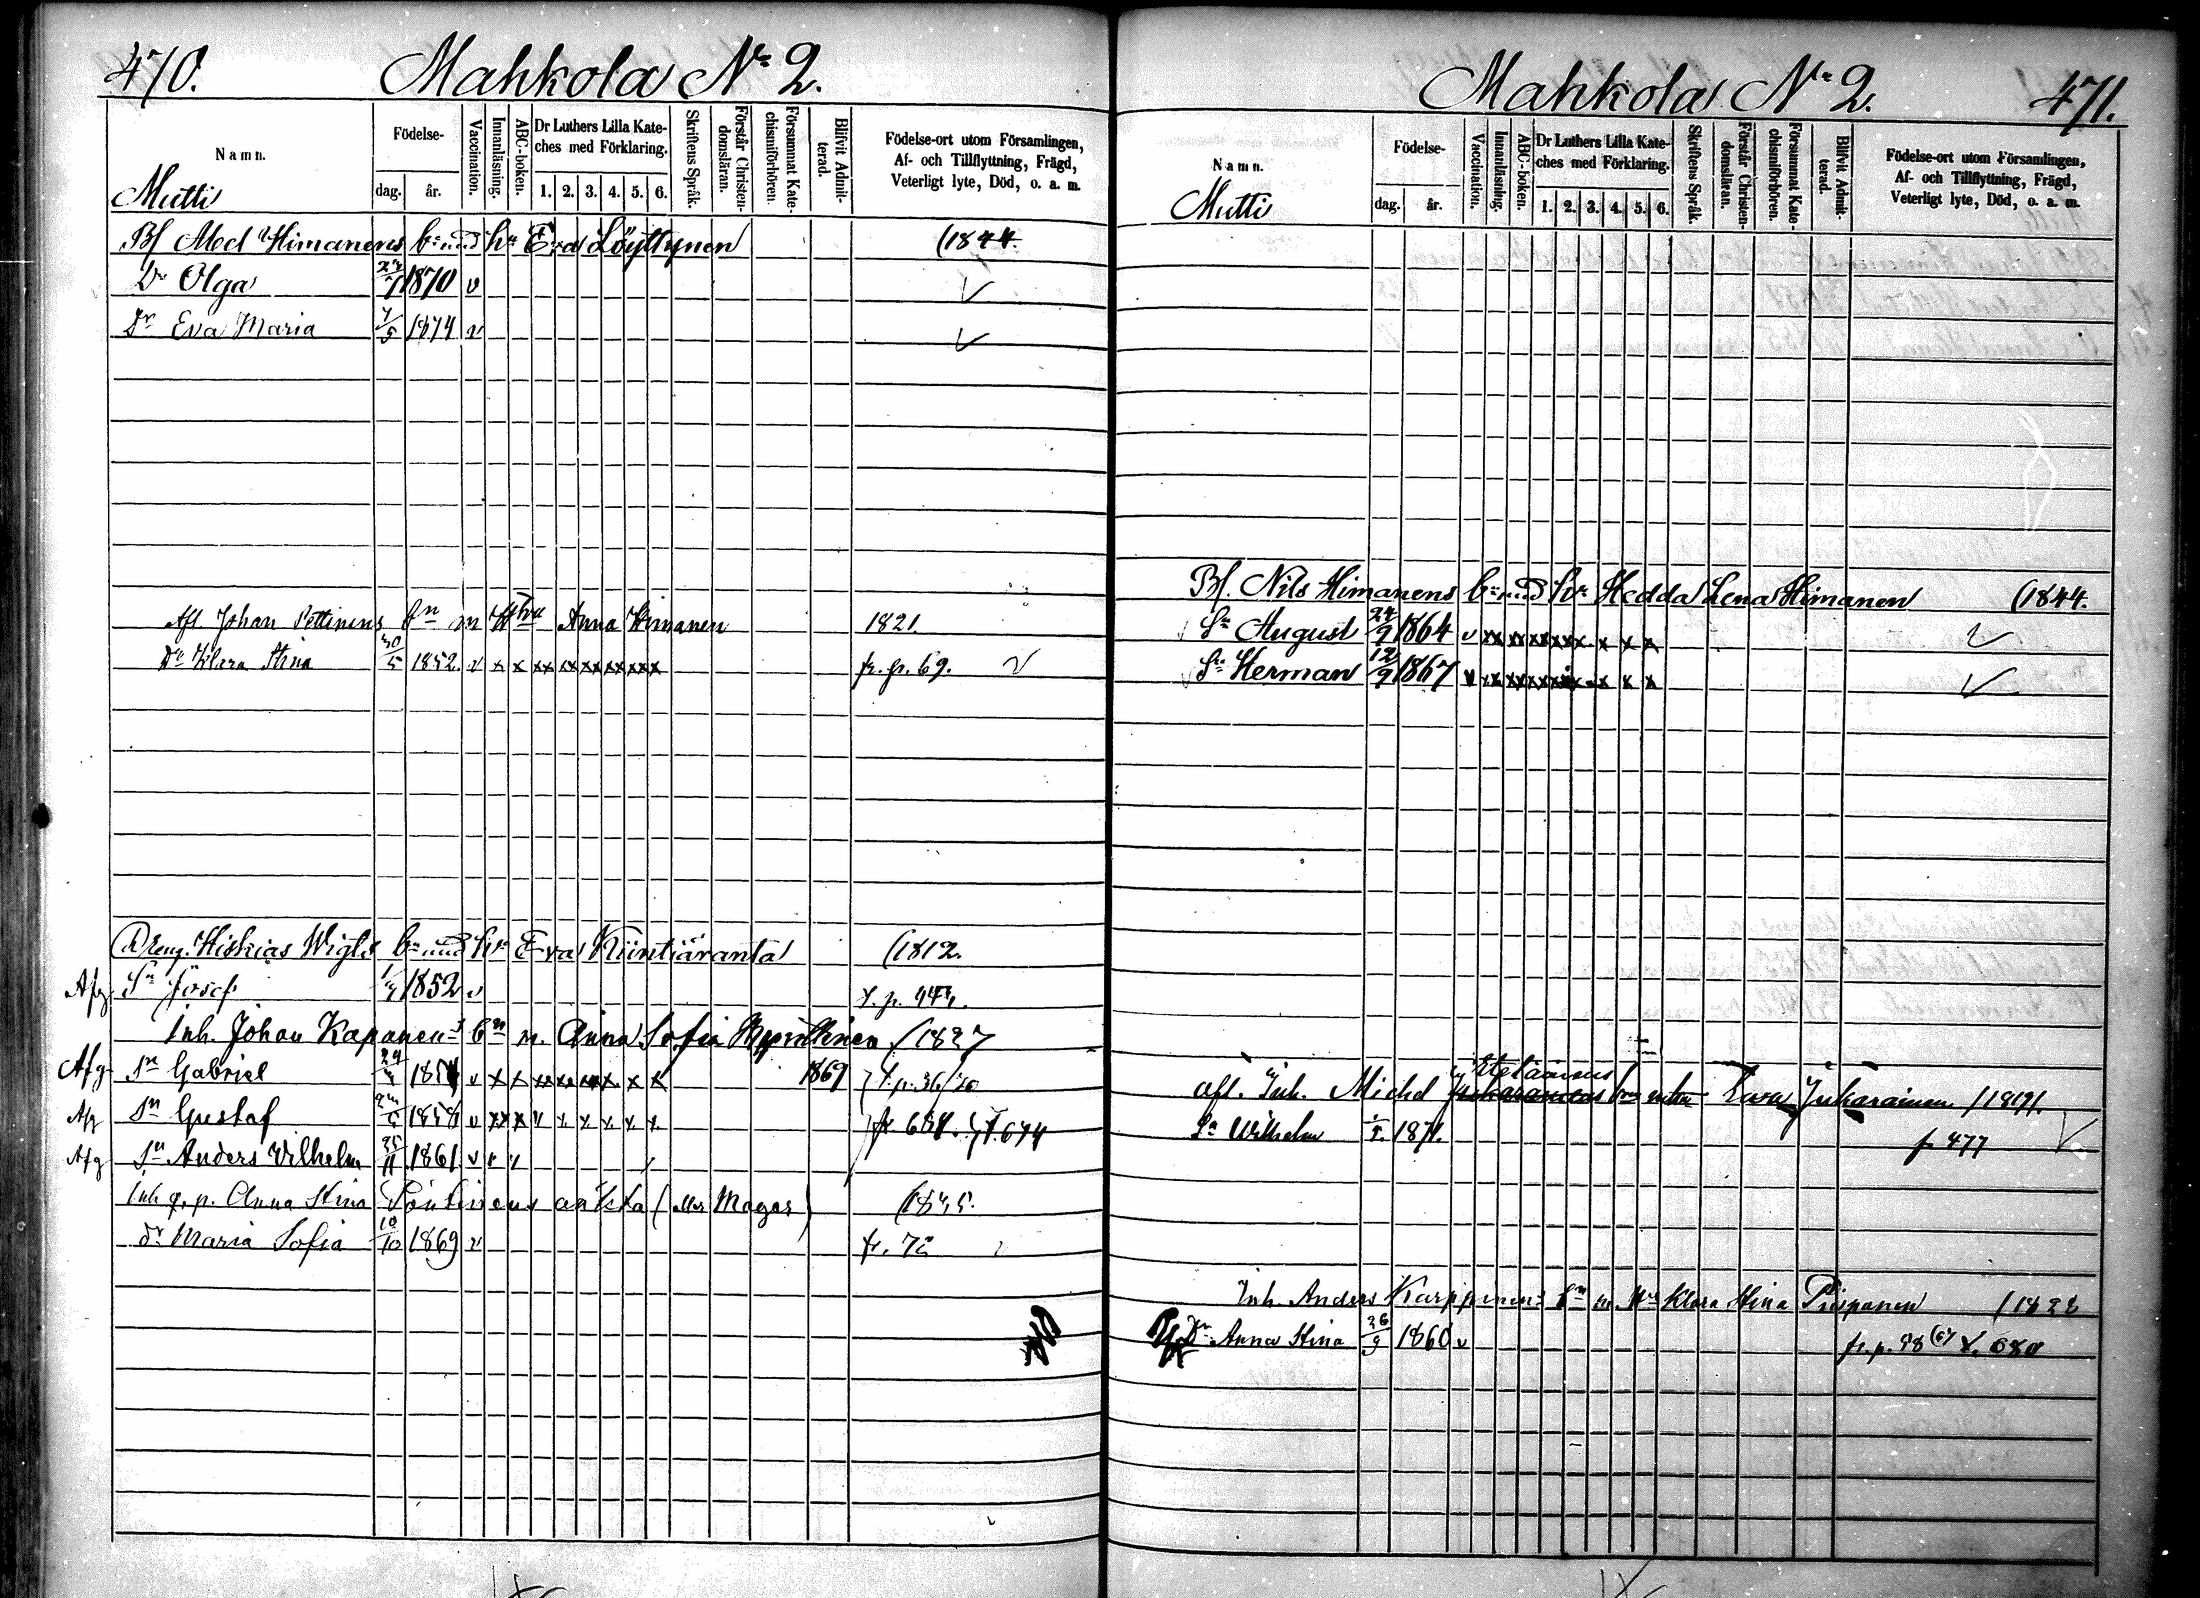 470. Mahkola No 2.
Namn.
Födelse-
dag.
år.
Vaccination.
Innanläsning.
ABC-boken.
Dr Luthers Lilla Kate-
ches med Förklaring.
1. 2. 3. 4. 5. 6.
Skriftens Språk.
Förstår Christen-
domsläran.
Försummat Kate-
chismiförhören.
Blifvit Admit-
terad.
Födelse-ort utom Församlingen,
Af- och Tillflyttning, Frägd,
Veterligt lyte, Död, o. a. m.
Mutti
Bf Abel Himanens bn und hu Eva Löyttynen (1844.
Dr Olga 7 1870 v
Dr Eva Maria 7/5 1874 v
Afl Johan Pettinens bn m Hu Anna Himanen 1821.
Dr Klara Stina 30/5 1852. v x x xx xx xx xx xx x fr. p. 69.
Dreng. Hiskias Wigls bn und hu Eva Kiintiäranta (1812.
Afg Sn Josef 1852 v
Inh. Johan Kapanens bn m. Anna Sofia (1827
Afg Sn Gabriel 24 v x x 1869 p. 36/70
Afg Sn Gustaf 1858 v
Afg Sn Anders Vilhelm 25/11 1861 v
Inh q. p. Anna Stina äkta (Magas)
dr Maria Sofia 10/10 1869 v fr. 72
Mahkola No 2. 471.
Namn.
Födelse-
dag.
år.
Vaccination.
Innanläsning.
ABC-boken.
Dr Luthers Lilla Kate-
ches med Förklaring.
1. 2. 3. 4. 5. 6.
Skriftens Språk.
Förstår Christen-
domsläran.
Försummat Kate-
chismiförhören.
Blifvit Admit-
terad.
Födelse-ort utom Församlingen,
Af- och Tillflyttning, Frägd,
Veterligt lyte, Död, o. a. m.
Mutti
Bf. Nils Himanens bn und hu Hedda Lena Himanen (1844.
Sn August 24/9 1864 v xx xx xx xx x. x x x
Sn Herman 12/9 1867 v xx xx xx x x x x
Eteläinens
afl. Inh. Michel bn utan Juharainen
Sn Wilhelm 1871. p 477
Inh. Anders Karppinens bn m Hu Klara Stina Piispanen (1822
Dr Anna Stina 26/9 1860 v fr. p. 98 680